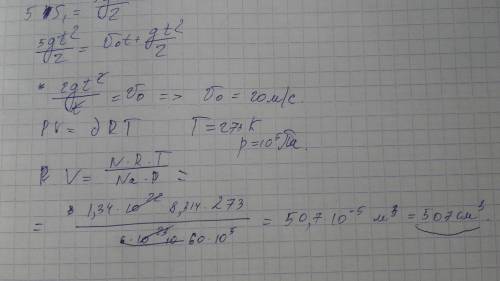 5 S₁ = gt²/2
5gt²/2 = v₀t + gt²/2
2gt²/t = v₀ => v₀ = 20 м/с.
PV = νRT T = 273 K
p = 10⁵ Па.
V = N·R·T/Na·P =
= 1,34·10²² 8,314·273/6·10²³ 60·10⁵ = 50,7·10⁻⁵ м³ = 507 см³